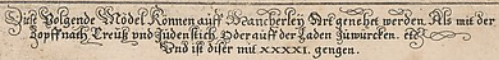 Diese Volgende Model Konnen auff Mancherley Art genehet werden. Als mit der
Zopffnath, Creutz vnd Judenstich, Oder auff der Laden Zuwürcken. etc
Vnd ist diser mit XXXXI. gengen.